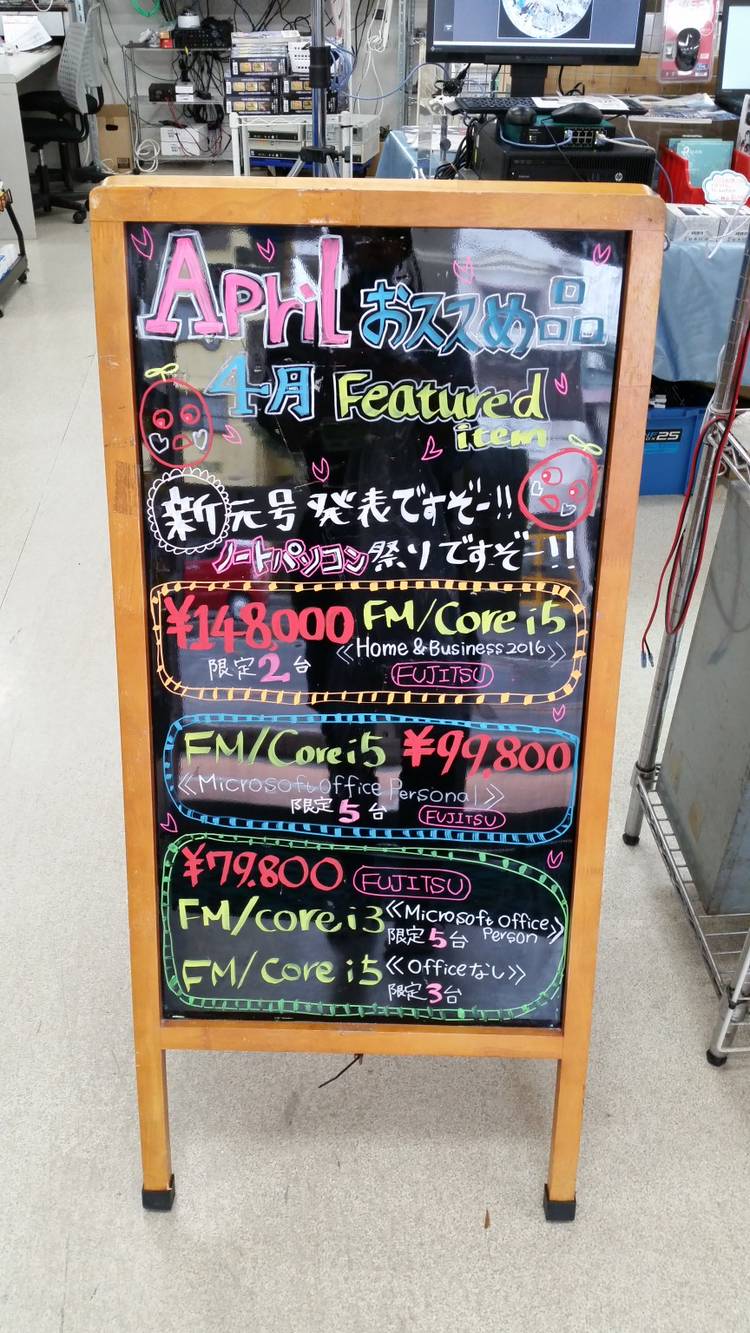 April おススめ品
4月 Featured
item
新元号発表ですぞー!!
ノートパソコン祭りですぞー!!
¥148,000 FM/Core i5
≪Home & Business 2016≫
限定2台 FUJITSU
FM/Core i5 ¥99,800
≪Microsoft Office Personal≫
限定5台 FUJITSU
¥79.800 FUJITSU
FM/core i3 ≪Microsoft Office Person≫
限定5台
FM/Core i5 ≪Officeなし≫
限定3台
25
hp